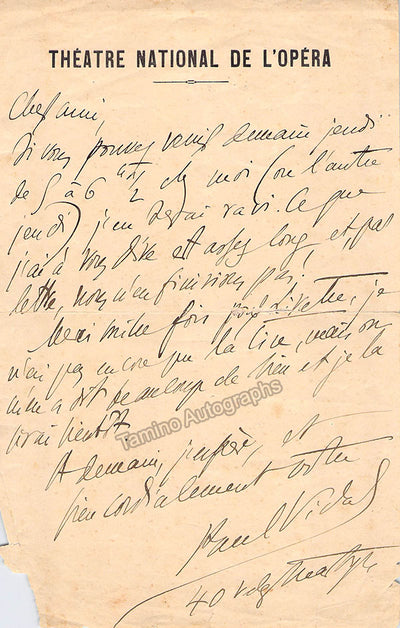 THÉATRE NATIONAL DE L'OPÉRA
Cher ami,
Si vous pouvez venir demain jeudi
de 5 à 6 h ½ chez moi (ou l'autre
jeudi) j'en serai ravi. Ce que
j'ai à vous dire est assez long, et, par
lettre, nous n'en finirions pas.
Merci mille fois pour je
n'ai pas encore pu la lire, mais on
m'en a dit beaucoup de bien et je la
lirai bientôt.
A demain, j'espère, et
bien cordialement votre
Paul Vidal
40 r des Martyrs
Tamino Autographs